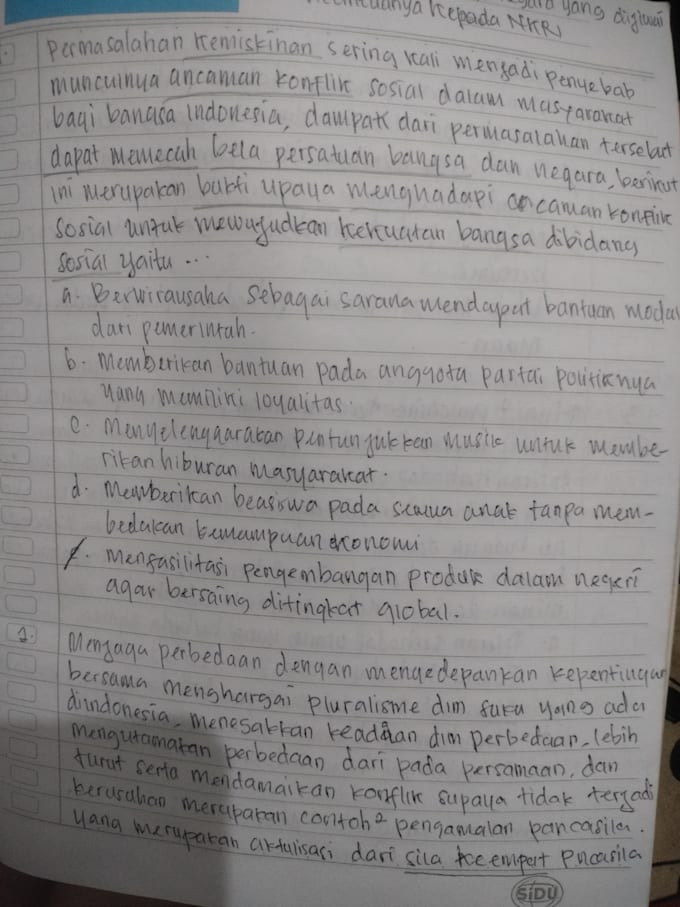 kepada NKRI yang dijiwai
Permasalahan kemiskinan sering kali menjadi penyebab
munculnya ancaman konflik sosial dalam masyarakat
bagi bangsa indonesia, dampak dari permasalahan tersebut
dapat memecah bela persatuan bangsa dan negara, berikut
ini merupakan bukti upaya menghadapi ancaman konflik
sosial untuk mewujudkan kekuatan bangsa dibidang
sosial yaitu ...
a. Berwirausaha sebagai sarana mendapat bantuan modal
dari pemerintah.
b. Memberikan bantuan pada anggota partai politiknya
yang memiliki loyalitas.
c. Menyelenggarakan pentunjukkan musik untuk membe-
rikan hiburan masyarakat.
d. Memberikan beasiswa pada semua anak tanpa mem-
bedakan kemampuan ekonomi
Mengasilitasi pengembangan produk dalam negeri
agar bersaing ditingkat global.
Menjaga perbedaan dengan mengedepankan kepentingan
bersama menghargai pluralisme dlm suku yang ada
diindonesia, keadaan dlm perbedaan, lebih
mengutamakan perbedaan dari pada persamaan, dan
turut serta mendamaikan konflik supaya tidak terjadi
kerusuhan merupakan contoh² pengamalan pancasila.
yang merupakan aktulisasi dari sila keempat Pncasila
SIDU